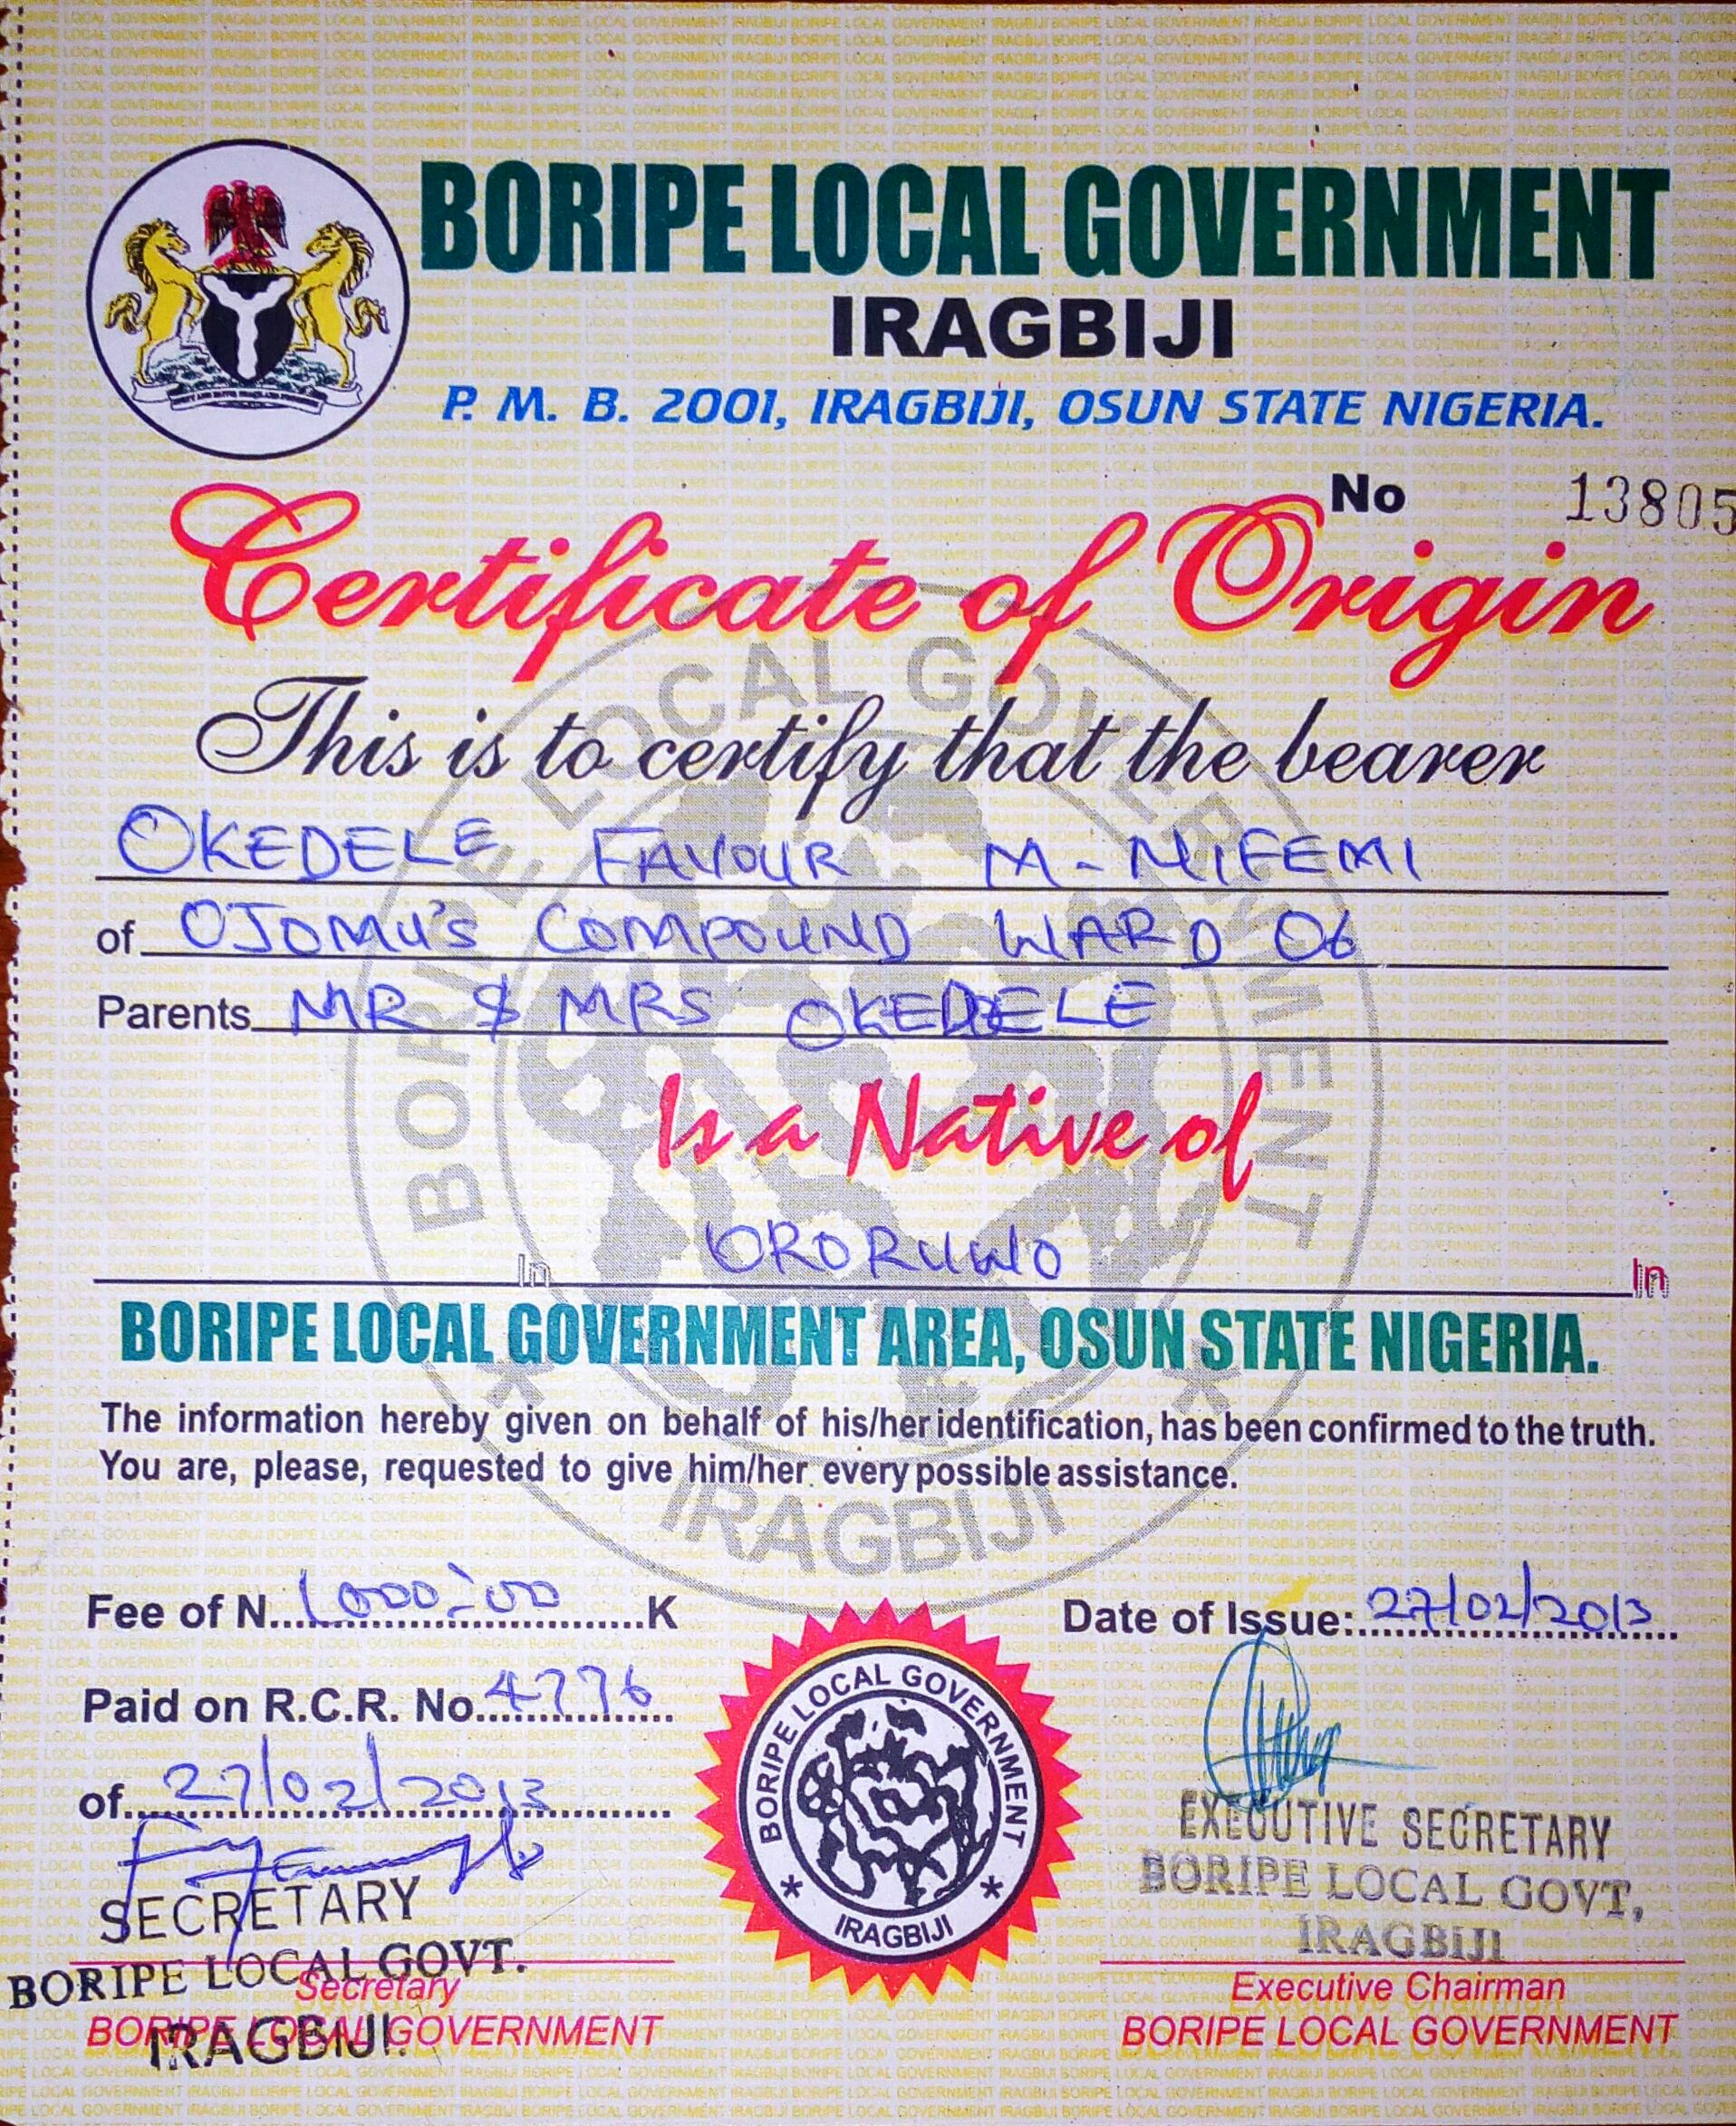 BORIPE LOCAL GOVERNMENT
IRAGBIJI
P. M. B. 2001, IRAGBIJI, OSUN STATE NIGERIA.
No 13805
Certificate of Origin
This is to certify that the bearer
OKEDELE FAVOUR M-NIFEMI
of OJOMU'S COMPOUND WARD 06
Parents MR & MRS OKEDELE
Is a Native of
ORORUWO
In In
BORIPE LOCAL GOVERNMENT AREA, OSUN STATE NIGERIA.
The information hereby given on behalf of his/her identification, has been confirmed to the truth.
You are, please, requested to give him/her every possible assistance.
BORIPE LOCAL GOVERNMENT
* IRAGBIJI *
Fee of N...1000=00...K
Date of Issue: 27/02/2013
Paid on R.C.R. No. 4776
of 27/02/2013
BORIPE LOCAL GOVERNMENT
* IRAGBIJI *
SECRETARY
BORIPE LOCAL GOVT.
IRAGBIJI.
Secretary
BORIPE LOCAL GOVERNMENT
EXECUTIVE SECRETARY
BORIPE LOCAL GOVT,
IRAGBIJI
Executive Chairman
BORIPE LOCAL GOVERNMENT